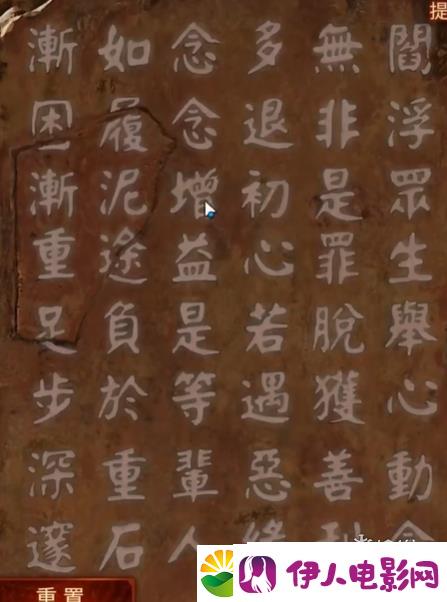 提
閻浮眾生舉心動
無非是罪脫獲善
多退初心若遇惡
念念增益是等輩人
如履泥途負於重石
漸困漸重足步深邃
重置
伊人电影网